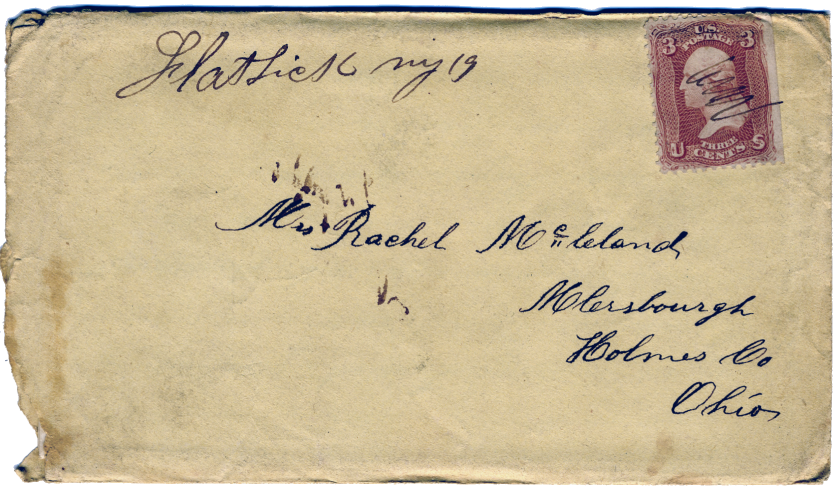 Flat Lick my 19
3 U.S. 3
POSTAGE
THREE
U CENTS S
Mrs Rachel McCleland
Mlersbourgh
Holmes Co
Ohio